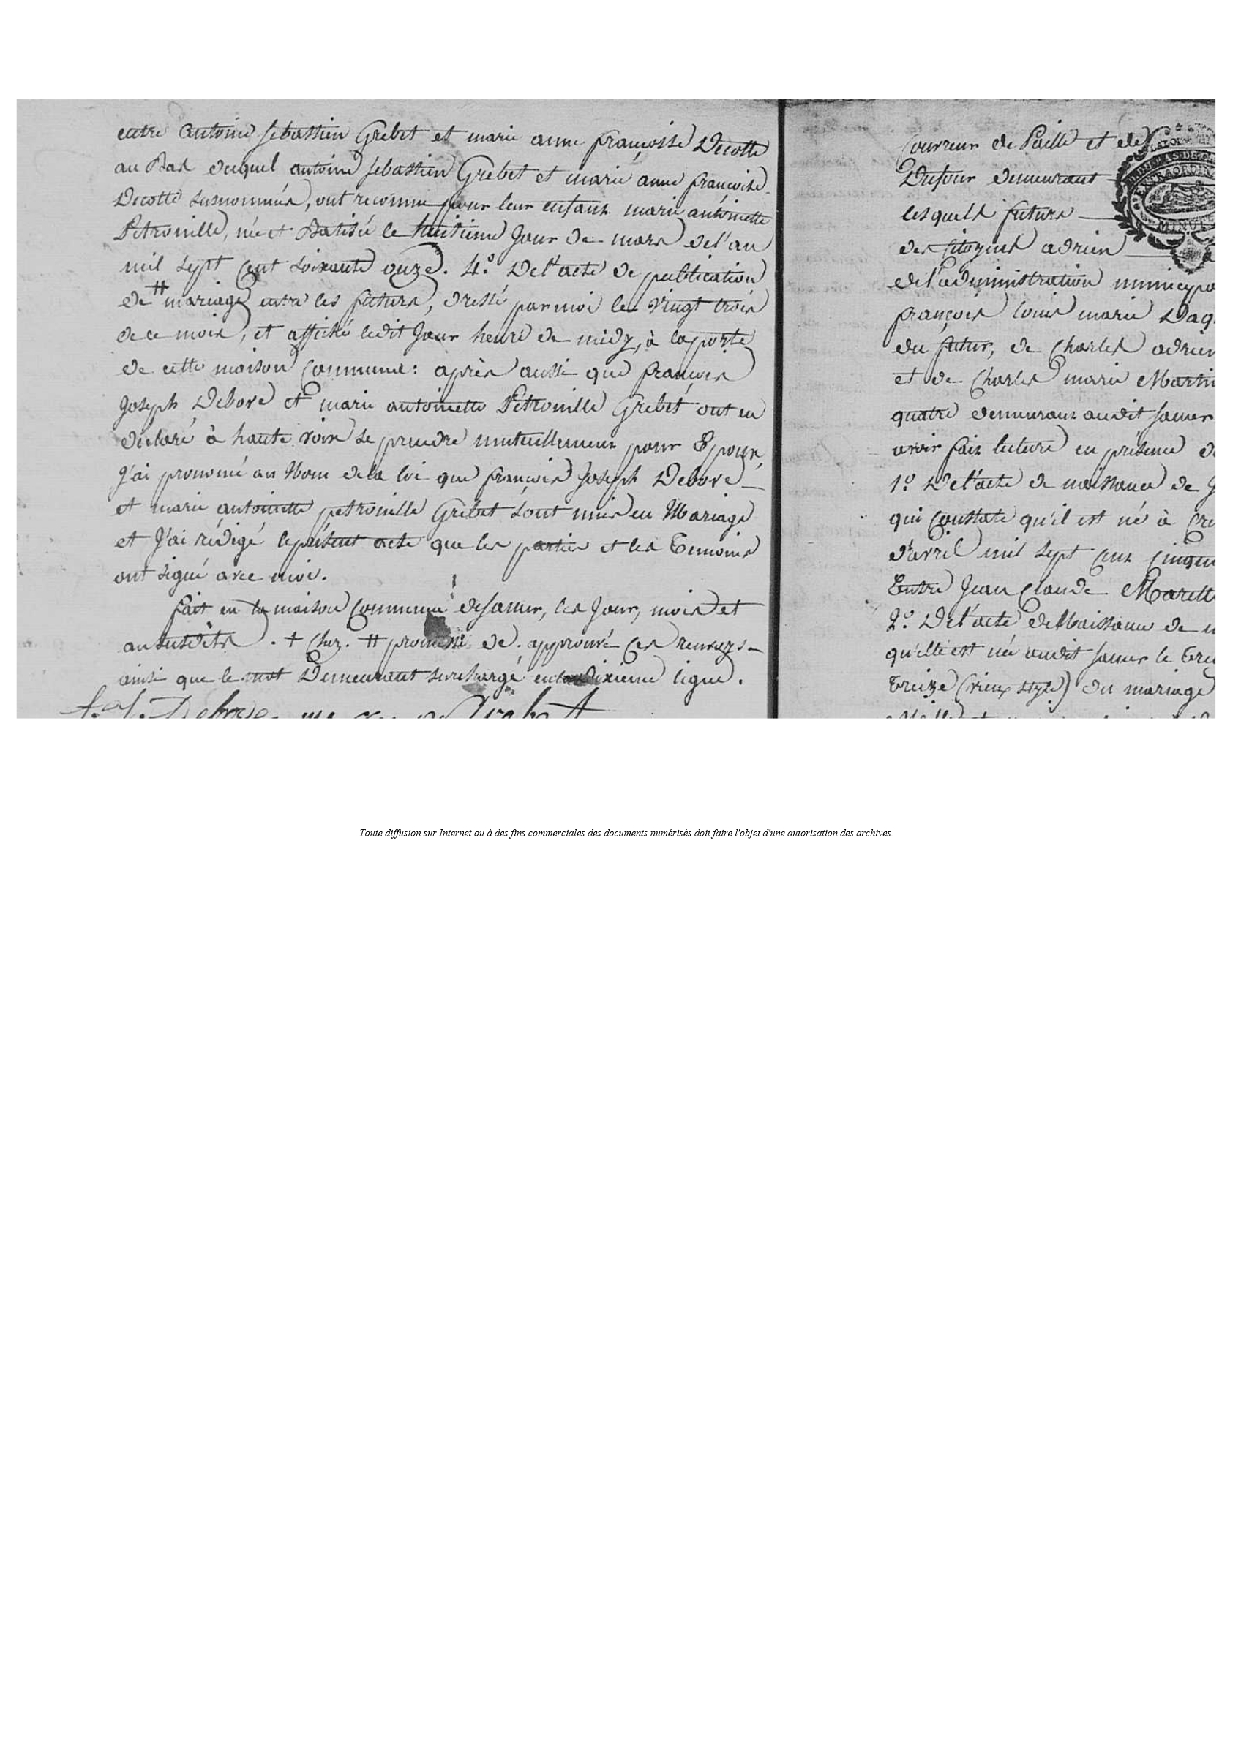 entre antoine sebastien Grebet et marie anne françoise Decotte
au Bas duquel antoine sebastien Grebet et marie anne françoise
Decotte susnommés, ont reconnu pour leur enfant marie antoinette
Petronille, née et Batisée le huitieme Jour de mars de l'an
mil sept cent soixante onze. 4.º De l'acte de publication
de # mariage entre les futurs, dressé par moi les vingt trois
de ce mois, et affiché ledit Jour heure de midy, à la porte
de cette maison Commune: après aussi que françois
Joseph Debove et marie antoinette Petronille Grebet ont eu
declaré à haute voix se prendre mutuellement pour Epoux,
J'ai prononcé au Nom de la loi que françois Joseph Debove
et marie antoinette petronille Grebet sont unis en Mariage
et J'ai rédigé le présent acte que les parties et les Temoins
ont signé avec moi.
fait en la maison Commune de samer, les Jour, mois et
an susdits. + Chez. # promesse de. approuvé ces renvoys
ainsi que le mot Demeurant surchargé en la dixieme ligne.
f. j. Debove Grebet
couvreur de Paille et de
Dufour demeurant
lesquels futurs
des citoyens adrien
de l'administration municipa
françois Louis marie Daq
du futur, de Charles adrien
et de Charles marie Martin
quatre demeurant audit samer
avoir fait lecture en présence d
1.º De l'acte de naissance de J
qui Constate qu'il est né à Cr
d'avril mil sept cent Cinqu
Entre Jean Claude
2.º De l'acte de Naissance de
qu'elle est née audit samer le Tre
Treize (vieux style) du mariage
Toute diffusion sur Internet ou à des fins commerciales des documents numérisés doit faire l'objet d'une autorisation des archives